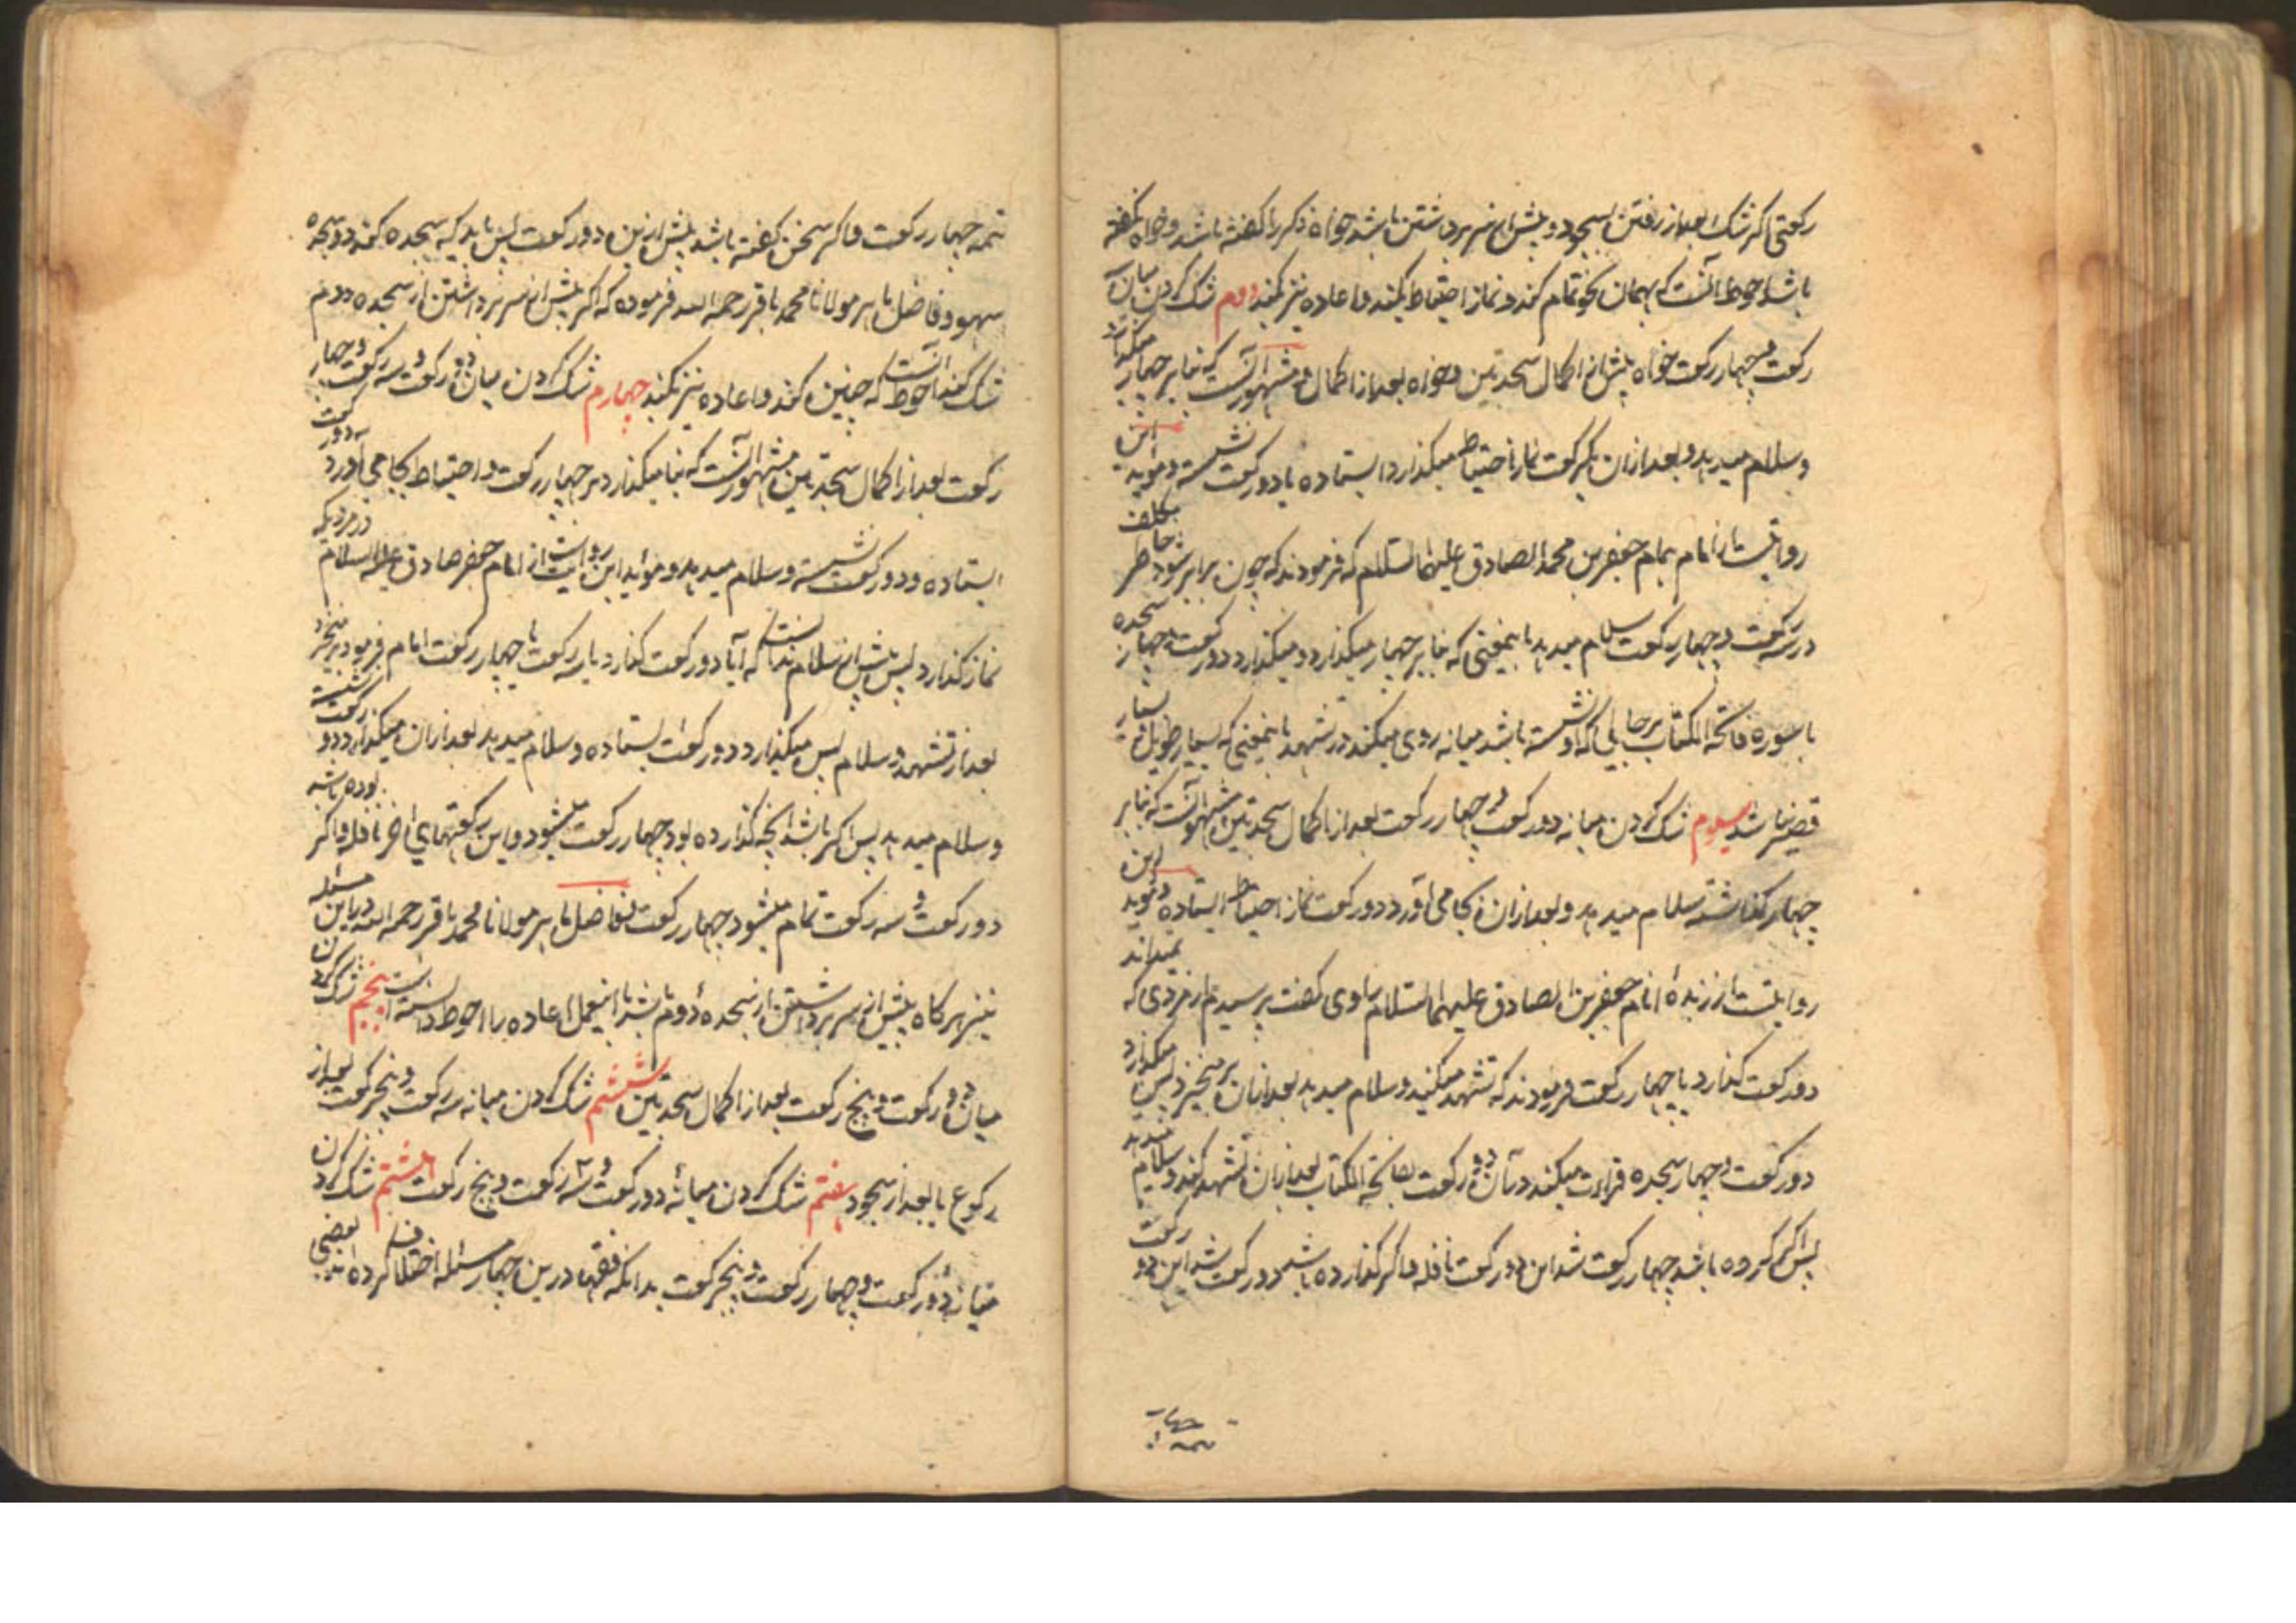 رکعتی اگر شک بعد از رفتن بسجود و پیش از سر برداشتن باشد خواه ذکر را گفته باشد و خواه نگفته
باشد احوط آنست که بهمان نحو تمام کند و نماز احتیاط بکند و اعاده نیز بکند دوم شک کردن میان سه
رکعت و چهار رکعت خواه پیش از اکمال سجدتین و خواه بعد از اکمال و مشهور آنست که بنا بر چهار میگذارد
و سلام میدهد و بعد از ان یکرکعت نماز احتیاط میگذارد ایستاده یا دو رکعت نشسته و مؤید این
روایتست از امام همام جعفر بن محمد الصادق علیهما السلام که فرمودند که چون برابر شود بخاطر مکلف
در سه رکعت و چهار رکعت سلام میدهد باینمعنی که بنا بر چهار میگذارد و میگذارد دو رکعت و چهار سجده
با سوره فاتحة الکتاب بر حالی که او نشسته باشد میانه روی میکند در تشهد باینمعنی که بسیار طویل و بسیار
قصیر نباشد سیوم شک کردن میانه دو رکعت و چهار رکعت بعد از اکمال سجدتین و مشهور آنست که بنا بر
چهار گذاشته سلام میدهد و بعد از ان بجا می آورد دو رکعت نماز احتیاط ایستاده و مؤید این
روایتست از زبدهٔ امام جعفر بن الصادق علیهما السلام راوی گفت پرسیدم از مردی که نمیداند
دو رکعت گذارد یا چهار رکعت فرمودند که تشهد میکند و سلام میدهد بعد از ان بر میخیزد پس میگذارد
دو رکعت و چهار سجده قراءت میکند در آن دو رکعت بفاتحة الکتاب بعد از ان تشهد کند و سلام میدهد
پس اگر کرده باشد چهار رکعت شد این دو رکعت نافله و اگر گذارده باشد دو رکعت شد این دو رکعت
تتمه چهار رکعت و اگر سخن گفته باشد پیش ازین دو رکعت پس باید که سجده کند دو سجدهٔ
سهو و فاضل باهر مولانا محمد باقر رحمه الله فرموده که اگر پیش از سر برداشتن از سجده دوم
شک کند احوط آنست که چنین کند و اعاده نیز بکند چهارم شک کردن میان دو رکعت و سه رکعت و چهار
رکعت بعد از اکمال سجدتین مشهور آنست که بنا میگذارد بر چهار رکعت و احتیاط بجا می آورد به دو رکعت
ایستاده و دو رکعت نشسته و سلام میدهد و مؤید این روایت است از امام جعفر صادق علیه السلام در مردیکه
نماز گذارد پس پیش از سلام ندانست که آیا دو رکعت گذارد یا سه رکعت یا چهار رکعت امام فرمود بر میخیزد
بعد از تشهد و سلام پس میگذارد دو رکعت ایستاده و سلام میدهد بعد از ان میگذارد دو رکعت نشسته
و سلام میدهد پس اگر باشد آنچه گذارده بود چهار رکعت میشود و این رکعتهای آخر نافله و اگر بوده باشد
دو رکعت و سه رکعت تمام میشود چهار رکعت و فاضل باهر مولانا محمد باقر رحمه الله در این مسئله
نیز هرگاه پیش از سر برداشتن از سجدهٔ دوم باشد با اینعمل اعاده را احوط دانسته است پنجم شک کردن
میان دو رکعت و پنج رکعت بعد از اکمال سجدتین ششم شک کردن میانه سه رکعت و پنج رکعت بعد از
رکوع یا بعد از سجود هفتم شک کردن میانهٔ دو رکعت و سه رکعت و پنج رکعت هشتم شک کردن
میانهٔ دو رکعت و چهار رکعت و پنج رکعت بدانکه فقها درین چهار مسئله اختلاف کرده اند بعضی